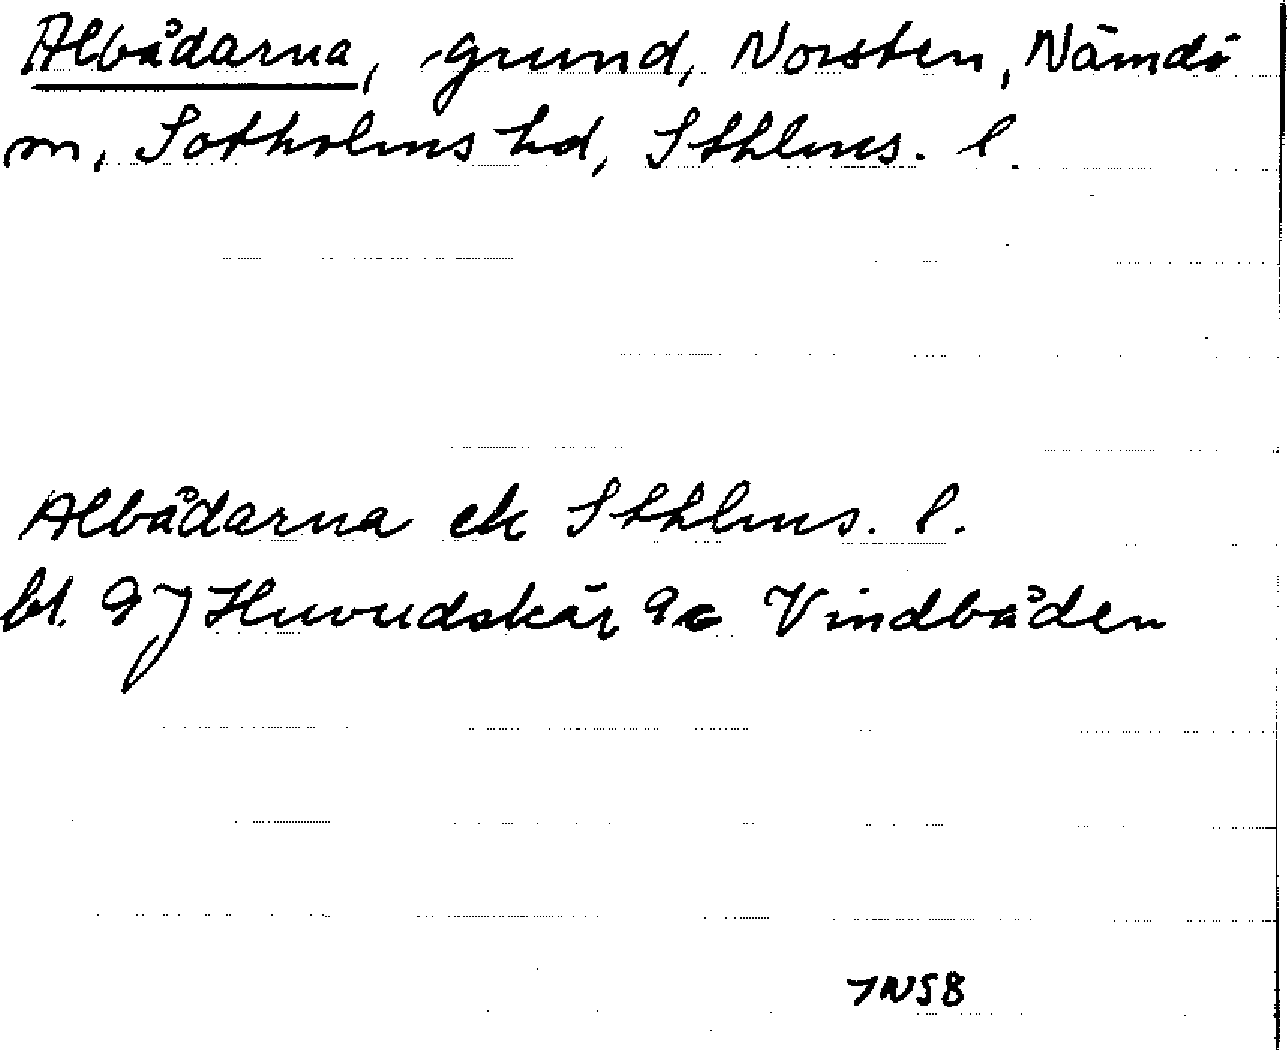 Albådarna, grund, Norsten, Nämdö
sn, Sotholms hd, Sthlms. l.
Albådarna ek Sthlms. l.
bl. 9J Huvudskär 9c Vindbåden
7N5B